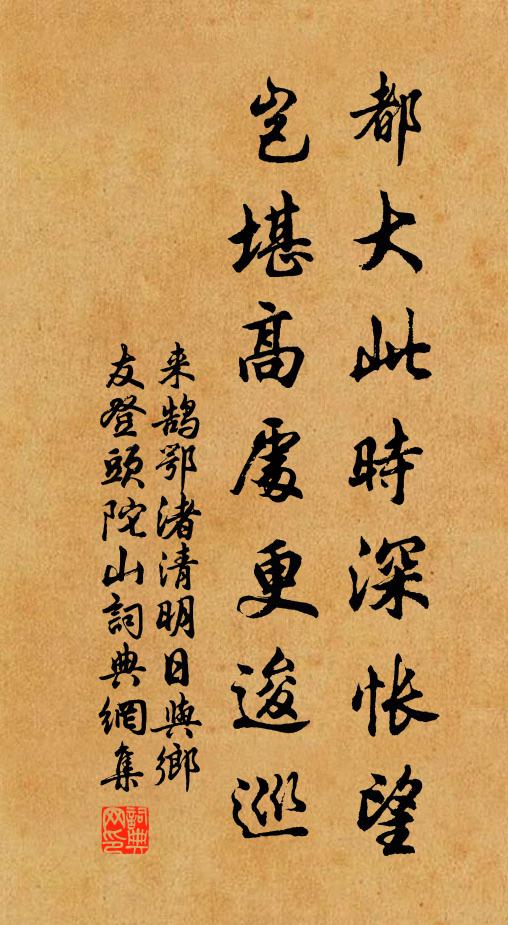 都大此時深悵望
豈堪高處更逡巡
来鵠鄂渚清明日與鄉
友登頭陀山詞典網集
詞典网印